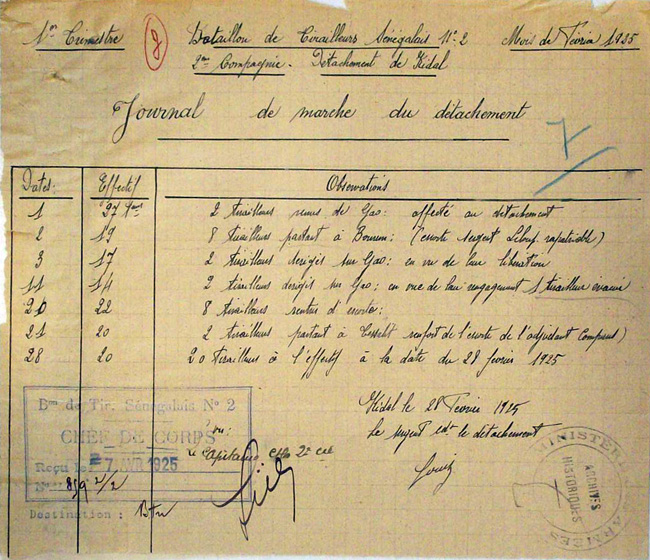 1er Trimestre
Bataillon de Tirailleurs Sénégalais N° 2
Mois de Février 1925
2me Compagnie - Détachement de Kidal
Journal de marche du détachement
Dates: Effectif Observations
1 27 2 tirailleurs venus de Gao: affecté au détachement
2 19 8 tirailleurs partant à Bourem: (escorte sergent Leloup. rapatriable)
3 17 2 tirailleurs dirigés sur Gao: en vue de leur libération
11 14 2 tirailleurs dirigés sur Gao: en vue de leur rengagement 1 tirailleur évacué
20 22 8 tirailleurs rentrés d'escorte:
21 20 2 tirailleurs partant à Tessalit renfort de l'escorte de l'adjudant
28 20 20 Tirailleurs à l'effectif à la date du 28 février 1925
Kidal le 28 Février 1925
Le sergent cdt le détachement
Bon de Tir. Sénégalais No 2
CHEF DE CORPS
Reçu le 7 AVR 1925
N° 859 2/2
Destination : Btn
Vu:
Le Capitaine cdt 2e Cie
MINISTÈRE ARMÉES
ARCHIVES
HISTORIQUES